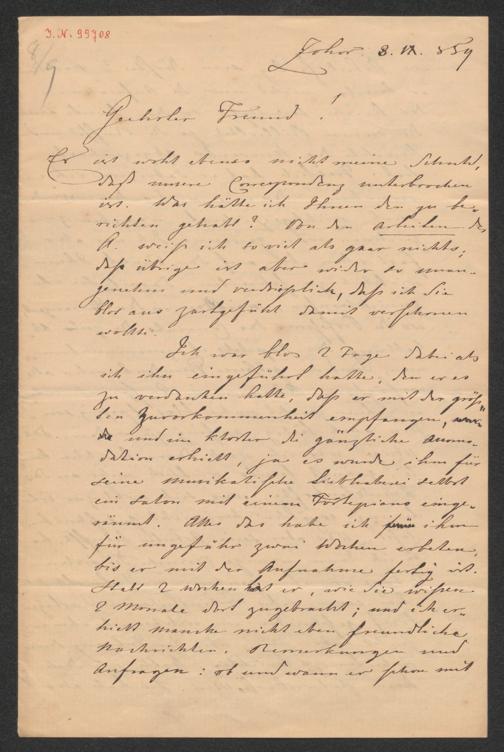 I.N. 99708
8/9
8. IX. 859
Geehrter Freund!
Es ist wohl ebenso nicht meine Schuld,
daß unsere Correspondenz unterbrochen
ist. Was hätte ich Ihnen den zu be-
richten gehabt? Von den Arbeiten des
A. weiß ich so viel als gaar nichts;
daß übrige ist aber wider so unan-
genehm und verdrüßlich, daß ich Sie
blos aus Zartgefühl damit verschonen
wollte.
Ich war blos 2 Tage dabei als
ich ihn eingeführt hatte, den er es
zu verdanken hatte, daß er mit der größ-
ten Zuvorkommenheit empfangen,
und im Kloster die gänzliche Acomo-
dation erhielt, ja es wurde ihm für
seine musikalische Liebhaberei selbst
ein Salon mit einem Fortepiano einge-
räumt. Alles das habe ich ihm
für ungefähr zwei Wochen erbeten,
bis er mit der Aufnahme fertig ist.
Statt 2 Wochen hat er, wie Sie wissen
2 Monate dort zugebracht; und ich er-
hielt manche nicht eben freundliche
Nachrichten. Bemerkungen und
Anfragen: ob und wann er schon mit